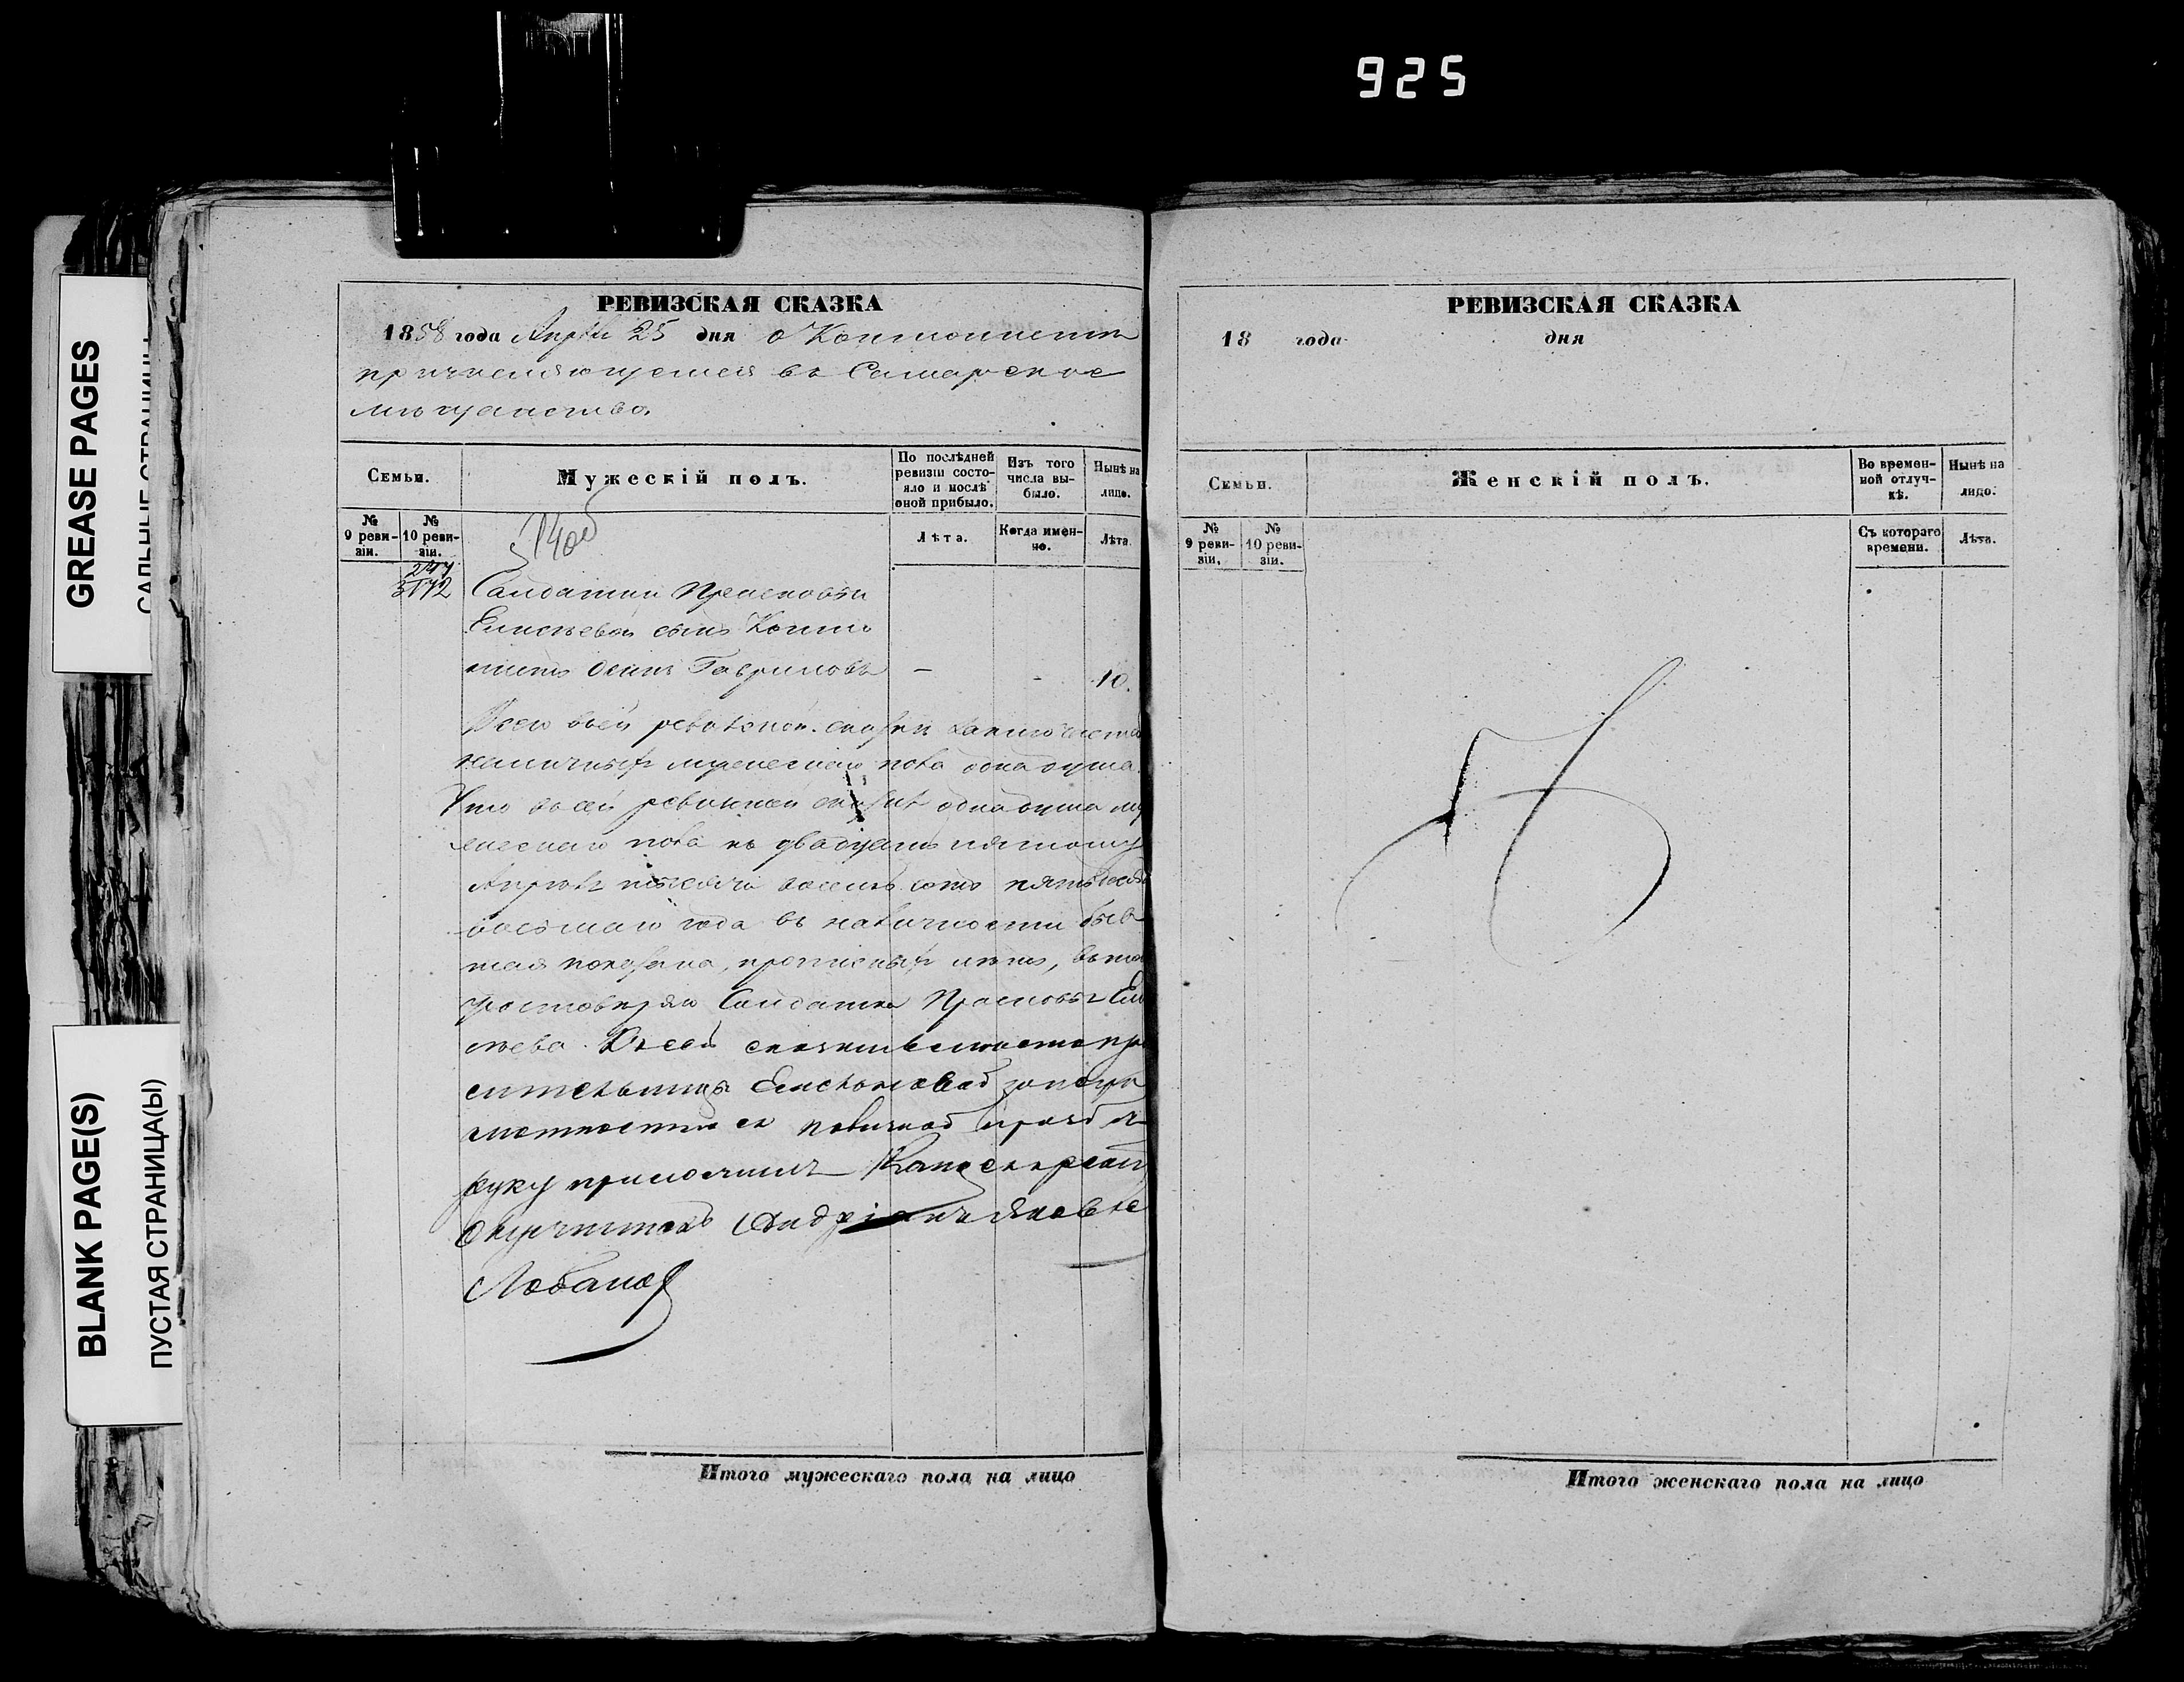 925
GREASE PAGES
BLANK PAGE(S)
ПУСТАЯ СТРАНИЦА(Ы)
РЕВИЗСКАЯ СКАЗКА
1858 года Апрѣля 25 дня о Кантонистѣ
причисляющемся въ Самарское
мѣщанство.
Семьи.
Мужескій полъ.
По послѣдней ревизіи состояло и послѣ оной прибыло.
Изъ того числа выбыло.
Нынѣ на лицо.
№ 9 ревизіи.
№ 10 ревизіи.
Лѣта.
Когда именно.
Лѣта.
Солдатки Прасковьи
Елисѣевой сынъ Канто
нистъ Осипъ Гавриловъ - - 10.
Всего въ сей ревизской сказкѣ заключается
наличныхъ мужескаго пола одна душа.
Что въ сей ревизской сказкѣ одна душа му
жескаго пола къ двадцать пятому
Апрѣля тысяча восемь сотъ пятьдесятъ
восьмаго года въ наличности быв
шая показана, прописныхъ нѣтъ, въ томъ
удостовѣряю Солдатка Прасковья Ели
сѣева. Къ сей сказкѣ вмѣсто про
сительницы за негра
мотностью ея по личной прозьбѣ
руку приложилъ
Андріанъ Яковлевъ
Лобановъ
Итого мужескаго пола на лицо
РЕВИЗСКАЯ СКАЗКА
18 года дня
Семьи.
Женскій полъ.
Во временной отлучкѣ.
Нынѣ на лицо.
№ 9 ревизіи.
№ 10 ревизіи.
Съ котораго времени.
Лѣта.
Итого женскаго пола на лицо